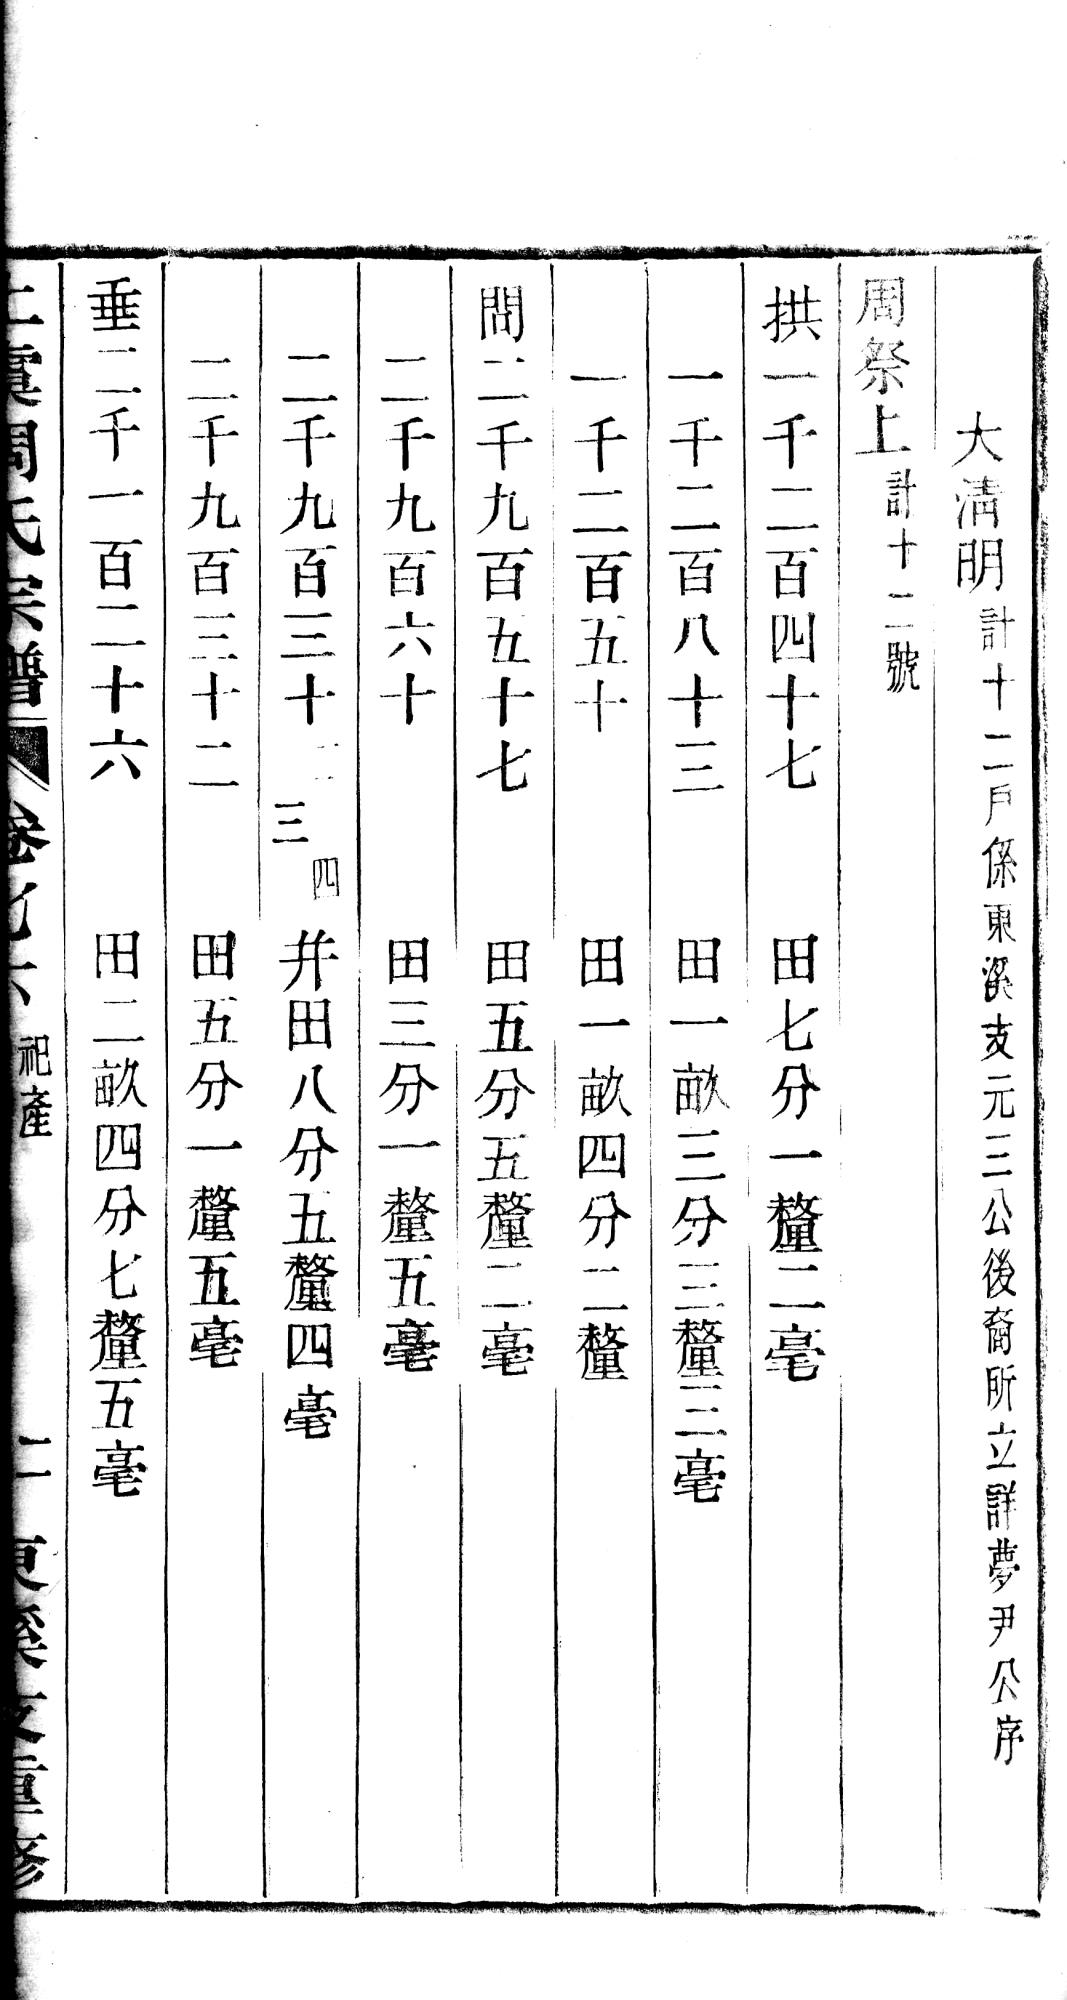 大淸明計十二戶係東溪支元三公後裔所立詳夢尹公序
周祭上計十二號
拱一千二百四十七　田七分一釐二毫
一千二百八十三　田一畝三分三釐三毫
一千二百五十　田一畝四分二釐
問二千九百五十七　田五分五釐二毫
二千九百六十　田三分一釐五毫
二千九百三十二三四　并田八分五釐四毫
二千九百三十二　田五分一釐五毫
垂二千一百二十六　田二畝四分七釐五毫
上虞周氏宗譜　卷十六　祀產　二　東溪支重修